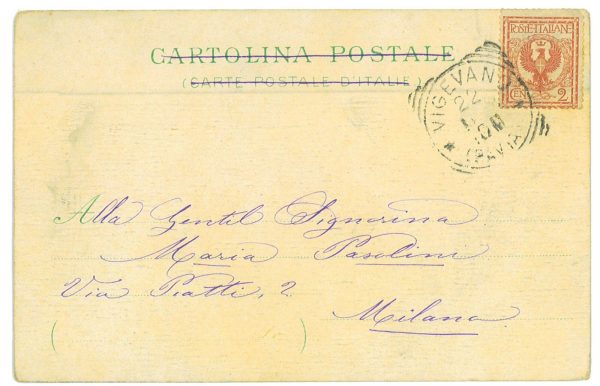 CARTOLINA POSTALE
(CARTE POSTALE D'ITALIE)
POSTE ITALIANE
CEN 2
VIGEVANO
22
10M
(PAVIA)
Alla Gentil Signorina
Maria Pasolini
Via Piatti, 2
Milano